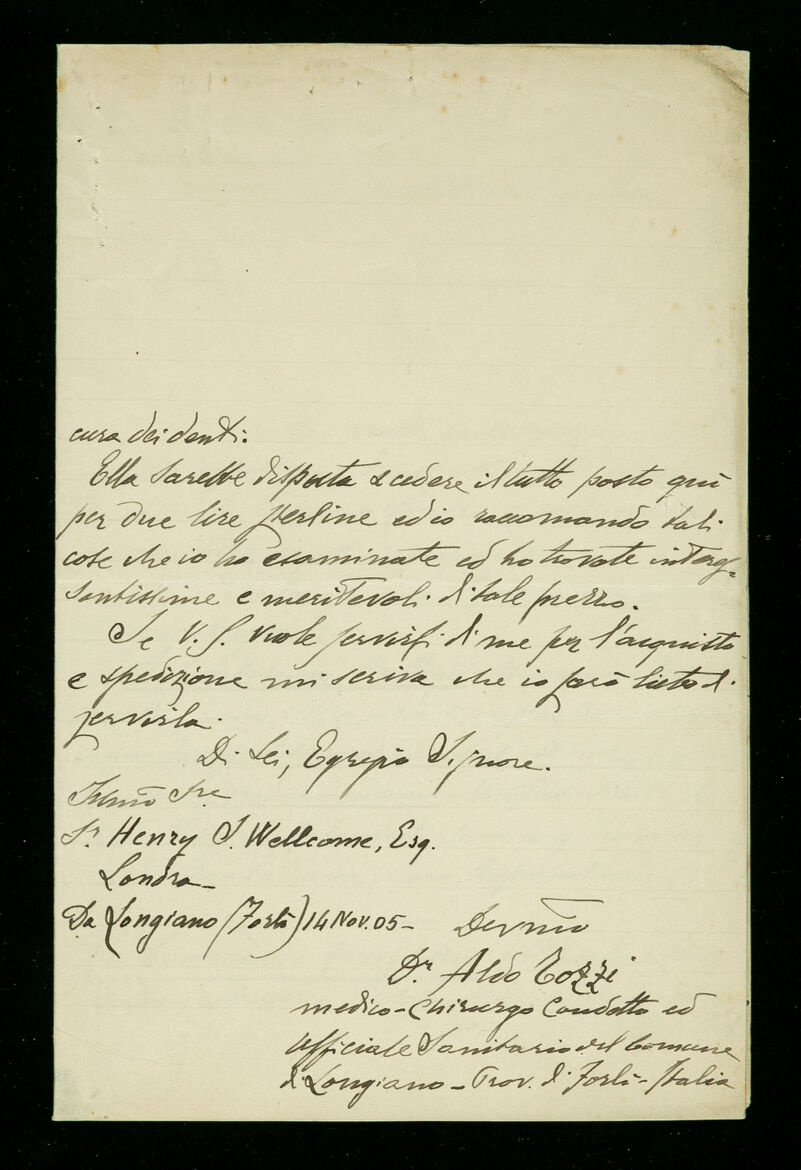 cura dei denti.
Ella sarebbe disposta a cedere il tutto posto quì
per due lire sterline ed io raccomando tali
cose che io ho esaminate ed ho trovate interes-
santissime e meritevoli di tale prezzo.
Se V. S. vuole servirsi di me per l'acquisto
e spedizione mi scriva che io sarò lieto di
servirla.
Di Lei, Egregio Signore.
Illmo Sre
Sr Henry S. Wellcome, Esq.
Londra -
Da Longiano (Forlì) 14 Nov. 05 - Devmo
Dr Aldo Tozzi
medico-chirurgo Condotto ed
Ufficiale Sanitario del Comune
di Longiano - Prov. di Forlì - Italia